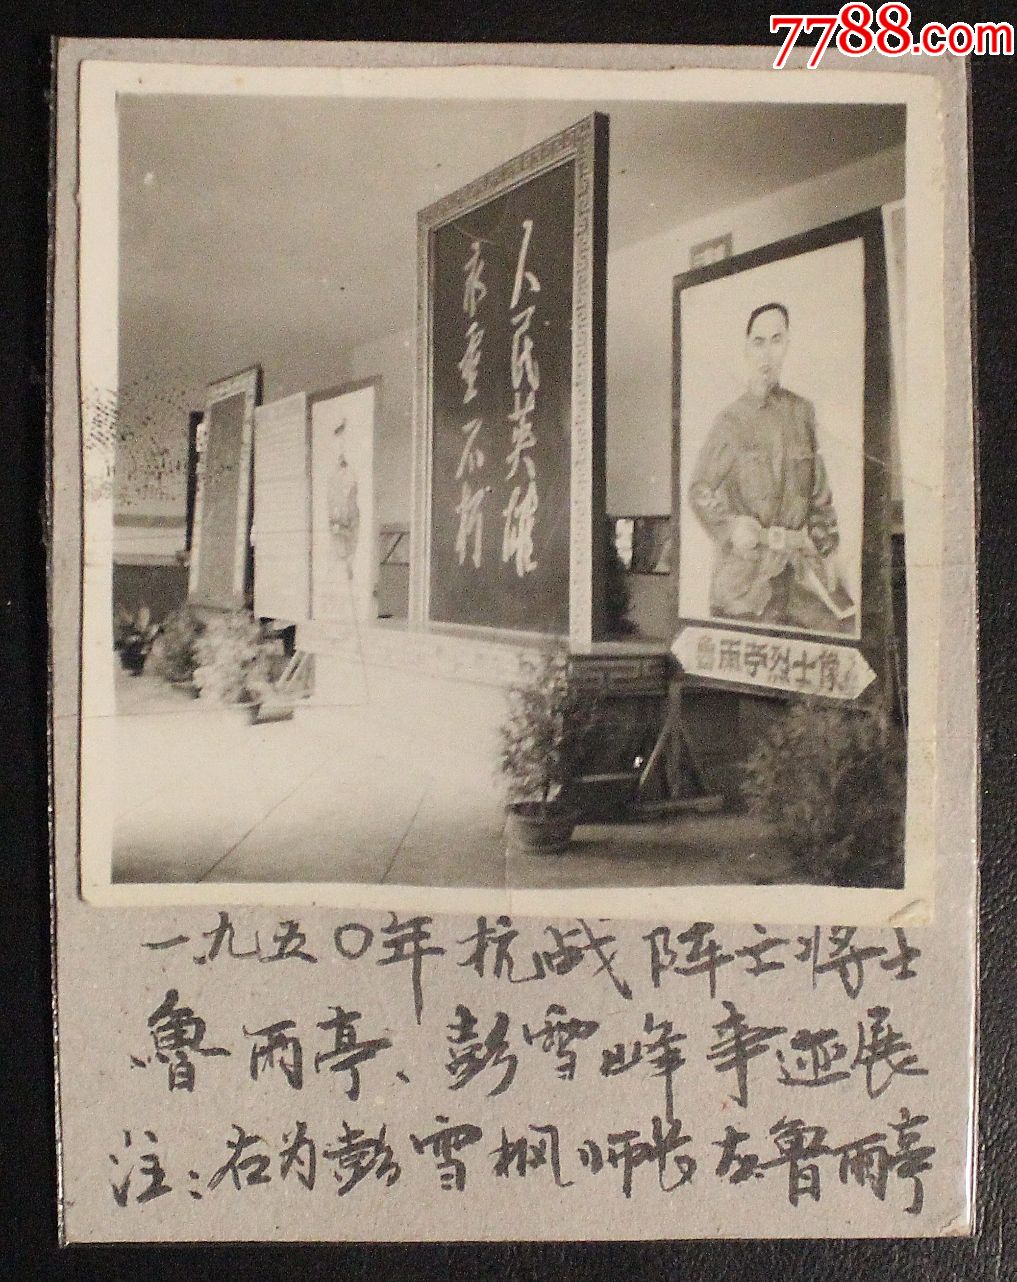 7788.com
人民英雄
永垂不朽
鲁雨亭烈士像
一九五〇年抗战阵亡将士
魯雨亭、彭雪峰事迹展
注:右为彭雪枫师长左魯雨亭